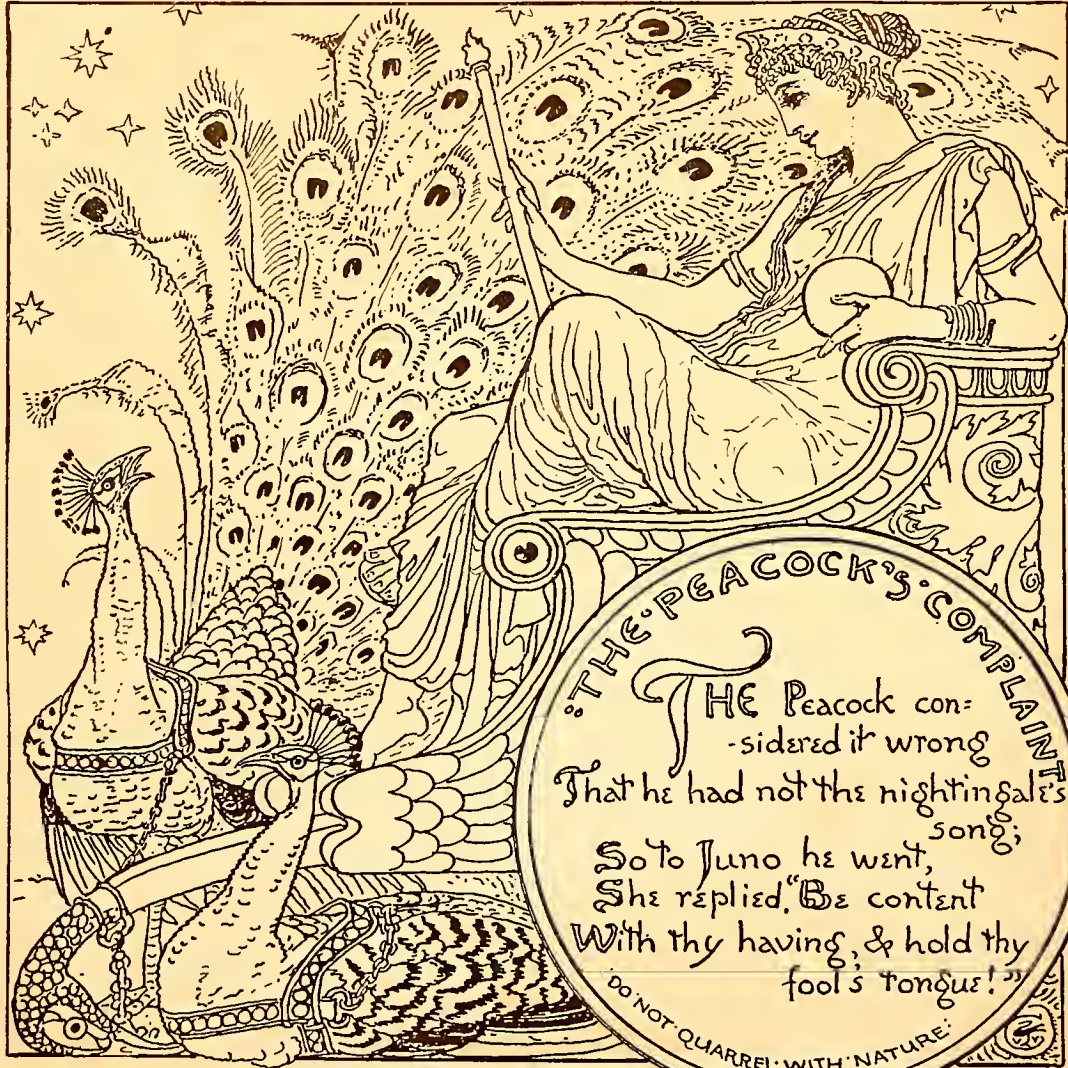 "THE·PEACOCK'S·COMPLAINT
THE Peacock con=
-sidered it wrong
That he had not the nightingale's
song;
So to Juno he went,
She replied, "Be content
With thy having, & hold thy
fool's tongue!"
·DO·NOT·QUARREL·WITH·NATURE·